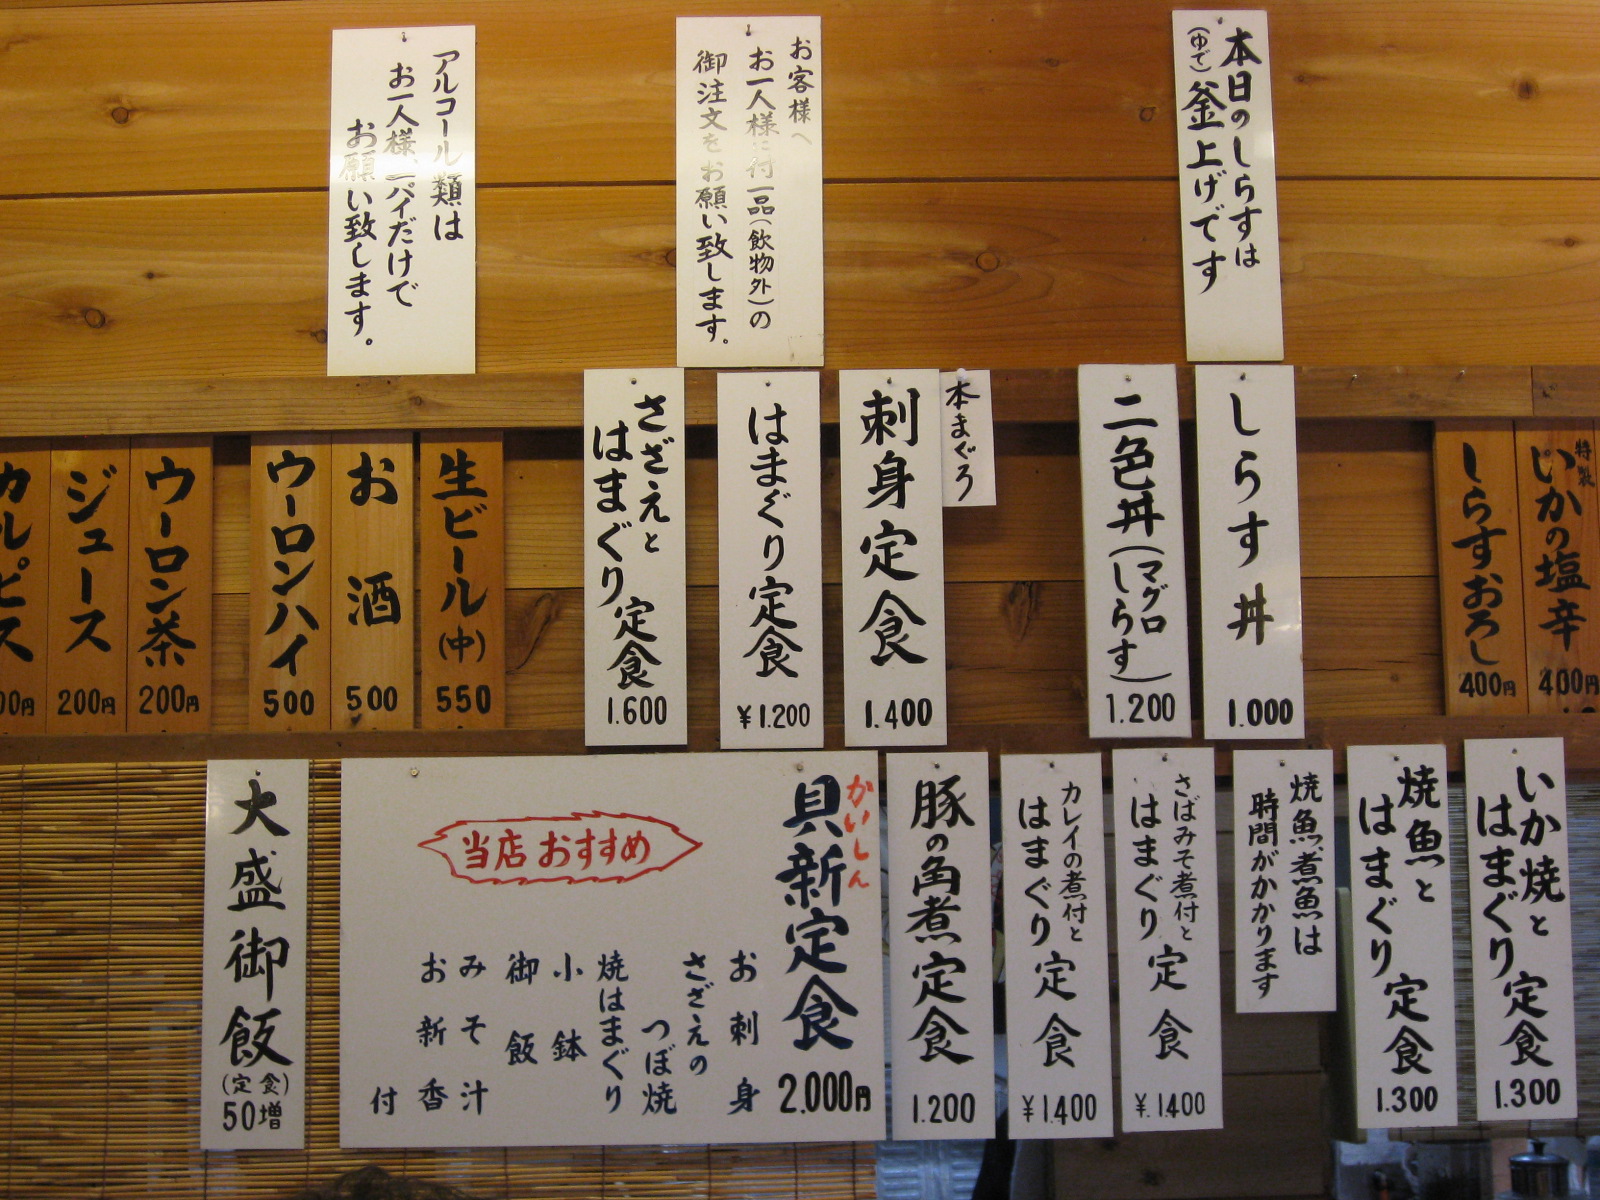 本日のしらすは
(ゆで)釜上げです
お客様へ
お一人様に付一品(飲物外)の
御注文をお願い致します。
アルコール類は
お一人様、一パイだけで
お願い致します。
特製
いかの塩辛
400円
しらすおろし
400円
しらす丼
1.000
二色丼(マグロしらす)
1.200
本まぐろ
刺身定食
1.400
はまぐり定食
¥1.200
さざえと
はまぐり定食
1.600
生ビール(中)
550
お酒
500
ウーロンハイ
500
ウーロン茶
200円
ジュース
200円
カルピス
00円
いか焼と
はまぐり定食
1.300
焼魚と
はまぐり定食
1.300
焼魚、煮魚は
時間がかかります
さばみそ煮付と
はまぐり定食
¥.1400
カレイの煮付と
はまぐり定食
¥1.400
豚の角煮定食
1.200
かいしん
貝新定食
2.000円
当店おすすめ
お刺身
さざえの
つぼ焼
焼はまぐり
小鉢
御飯
みそ汁
お新香
付
大盛御飯
(定食)
50増